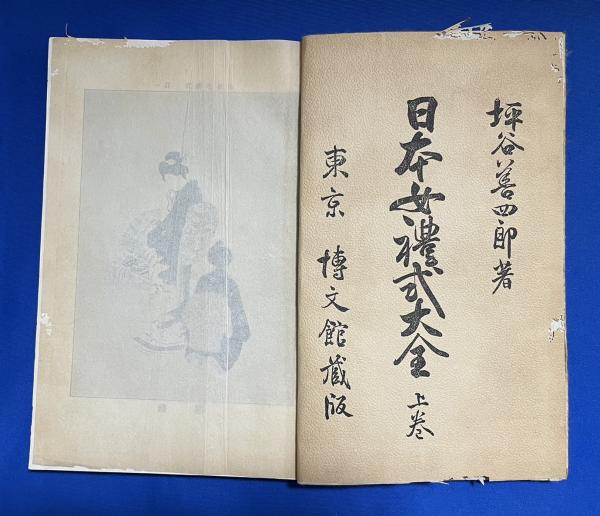 坪谷善四郎著
日本女禮式大全 上巻
東京 博文館蔵版